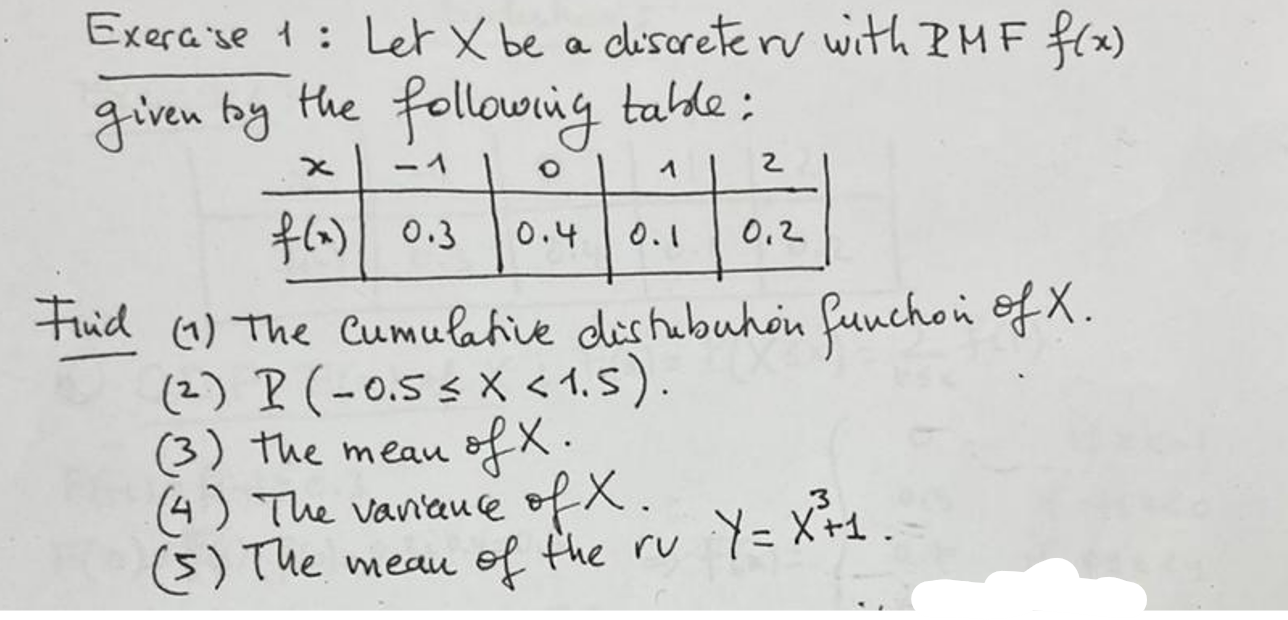 Exercise 1 : Let X be a discrete rv with PMF f(x)
given by the following table :
x | -1 | 0 | 1 | 2
f(x) | 0.3 | 0.4 | 0.1 | 0.2
Find (1) The cumulative distribution function of X.
(2) P(-0.5 ≤ X < 1.5).
(3) the mean of X.
(4) The variance of X.
(5) The mean of the rv Y = X³+1.